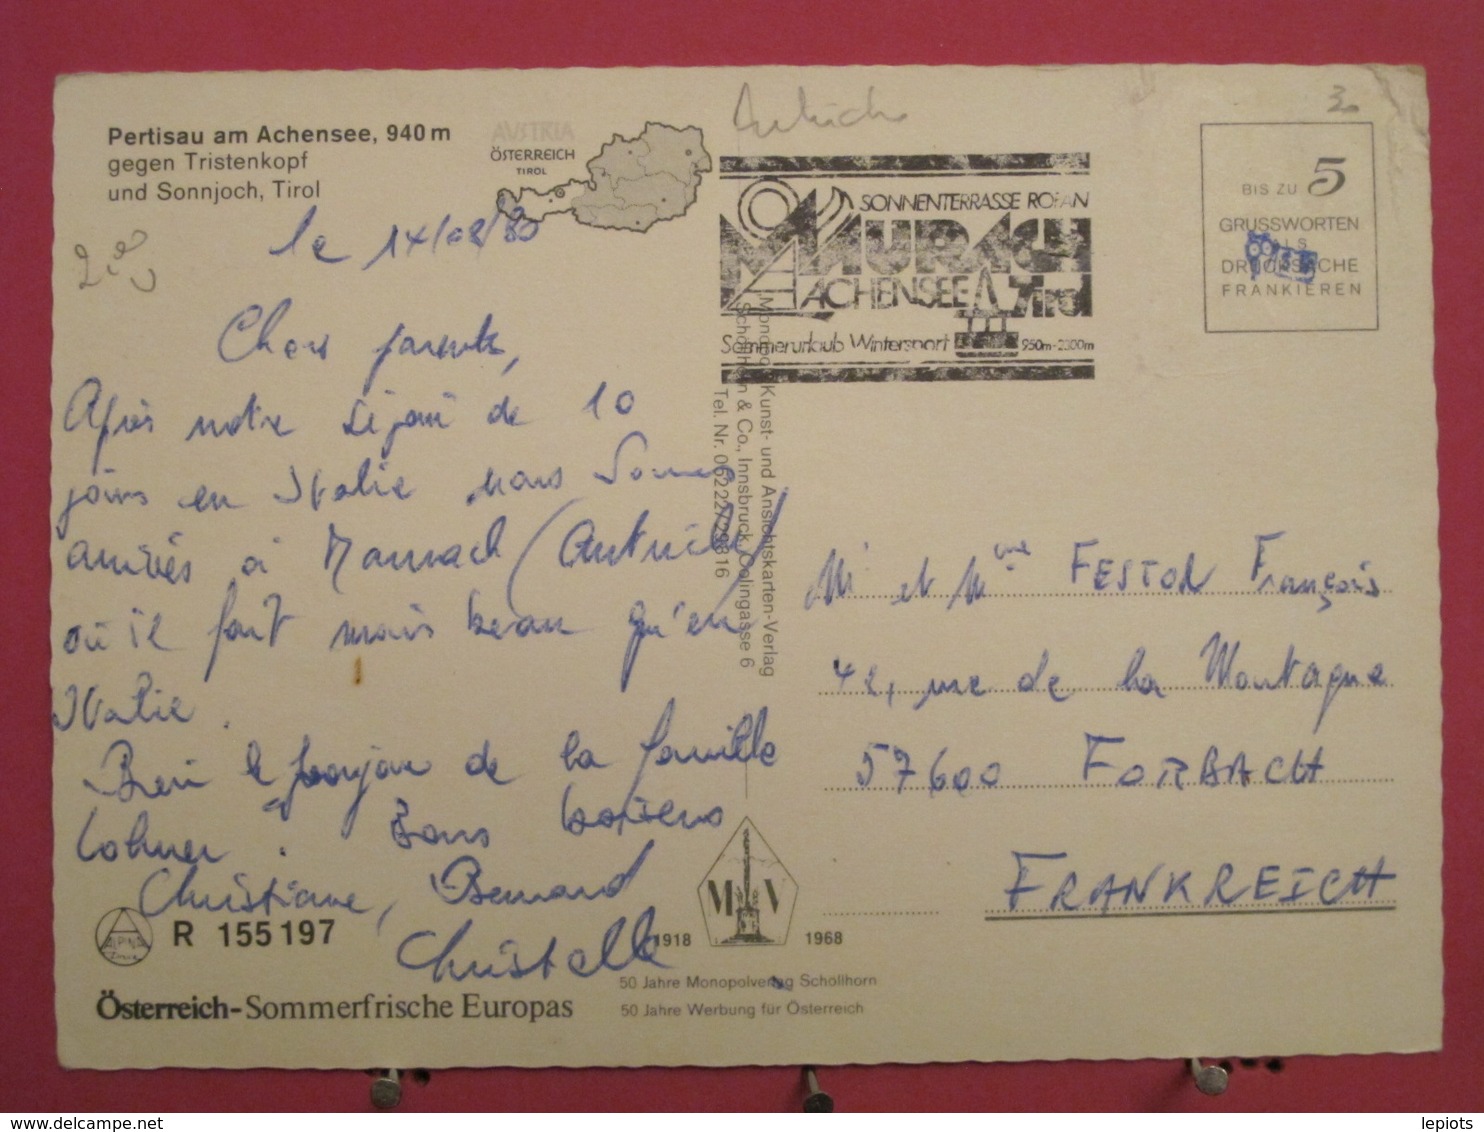 Pertisau am Achensee, 940 m
gegen Tristenkopf
und Sonnjoch, Tirol
AUSTRIA
ÖSTERREICH
TIROL
le 14/08/80
Chers parents,
Après notre séjour de 10
jours en Italie nous sommes
arrivés à Maurach (Autriche)
où il fait mais beau qu'en
Italie.
Bien le bonjour de la famille
Lohner. Bons baisers
Christiane, Bernard
Christelle
ALPINA
R 155197
Österreich-Sommerfrische Europas
Monopol Kunst- und Ansichtskarten-Verlag
Schöllhorn & Co., Innsbruck, Colingasse 6
Tel. Nr. 05222/29816
M V
1918 1968
50 Jahre Monopolverlag Schöllhorn
50 Jahre Werbung für Österreich
Autriche
SONNENTERRASSE ROFAN
MAURACH
ACHENSEE Tirol
Sommerurlaub Wintersport 950m-2300m
3
BIS ZU 5
GRUSSWORTEN
ALS
DRUCKSACHE
FRANKIEREN
Mr et Mme FESTOR François
42, rue de la Montagne
57600 FORBACH
FRANKREICH
lepiots